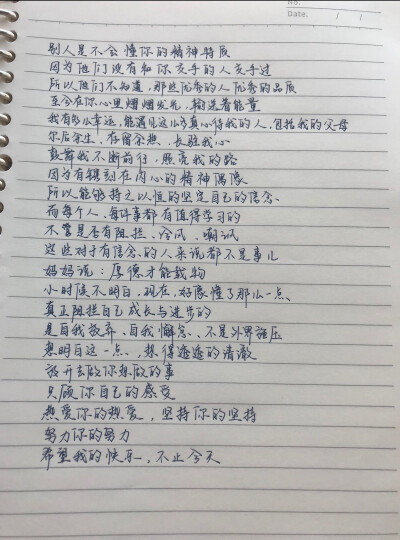 No.
Date. / /
别人是不会懂你的精神特质
因为他们没有和你交手的人交手过
所以他们不知道,那些优秀的人优秀的品质
至今在你心里熠熠发光,输送着能量
我有多么幸运,能遇见这么多真心待我的人,包括我的父母
尔后余生,存留余热、长驻我心
鼓舞我不断前行,照亮我的路
因为有镌刻在内心的精神偶像
所以能够持之以恒的坚定自己的信念、
而每个人、每件事都有值得学习的
不管是否有阻拦、冷风、嘲讽
这些对于有信念的人来说都不是事儿
妈妈说:厚德才能载物
小时候不明白,现在,好像懂了那么一点、
真正阻拦自己成长与进步的
是自我放弃、自我懈怠、不是外界施压
想明白这一点、,想得透透的清澈
放开去做你想做的事
只顾你自己的感受
热爱你的热爱,坚持你的坚持
努力你的努力
希望我的快乐,不止今天